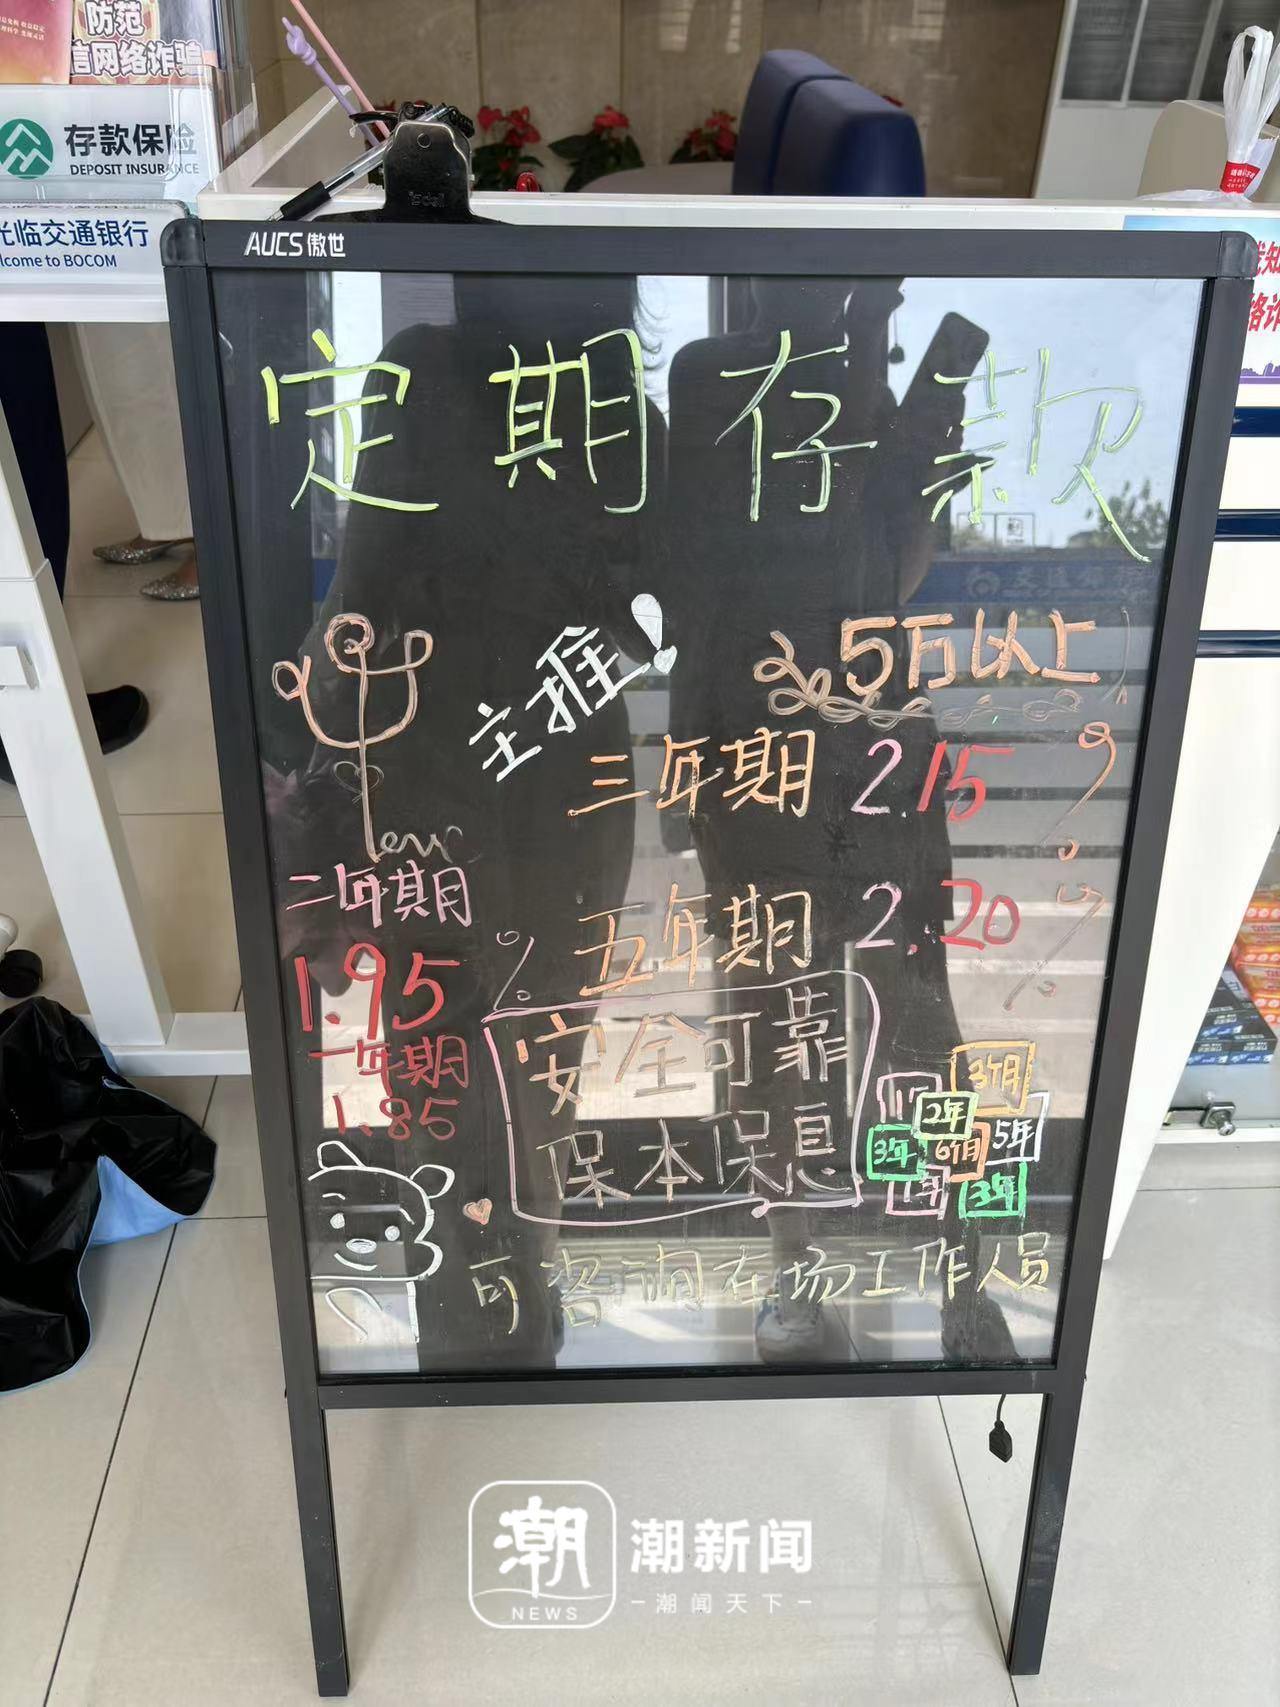 防范
信网络诈骗
存款保险
DEPOSIT INSURANCE
光临交通银行
lcome to BOCOM
AUCS 傲世
定期存款
主推!
5万以上
三年期 2.15 %
五年期 2.20 %
二年期
1.95 %
一年期
1.85
安全可靠
保本保息
3个月
1年
2年
5年
3年
6个月
1年
3年
可咨询在场工作人员
潮
NEWS
潮新闻
潮闻天下